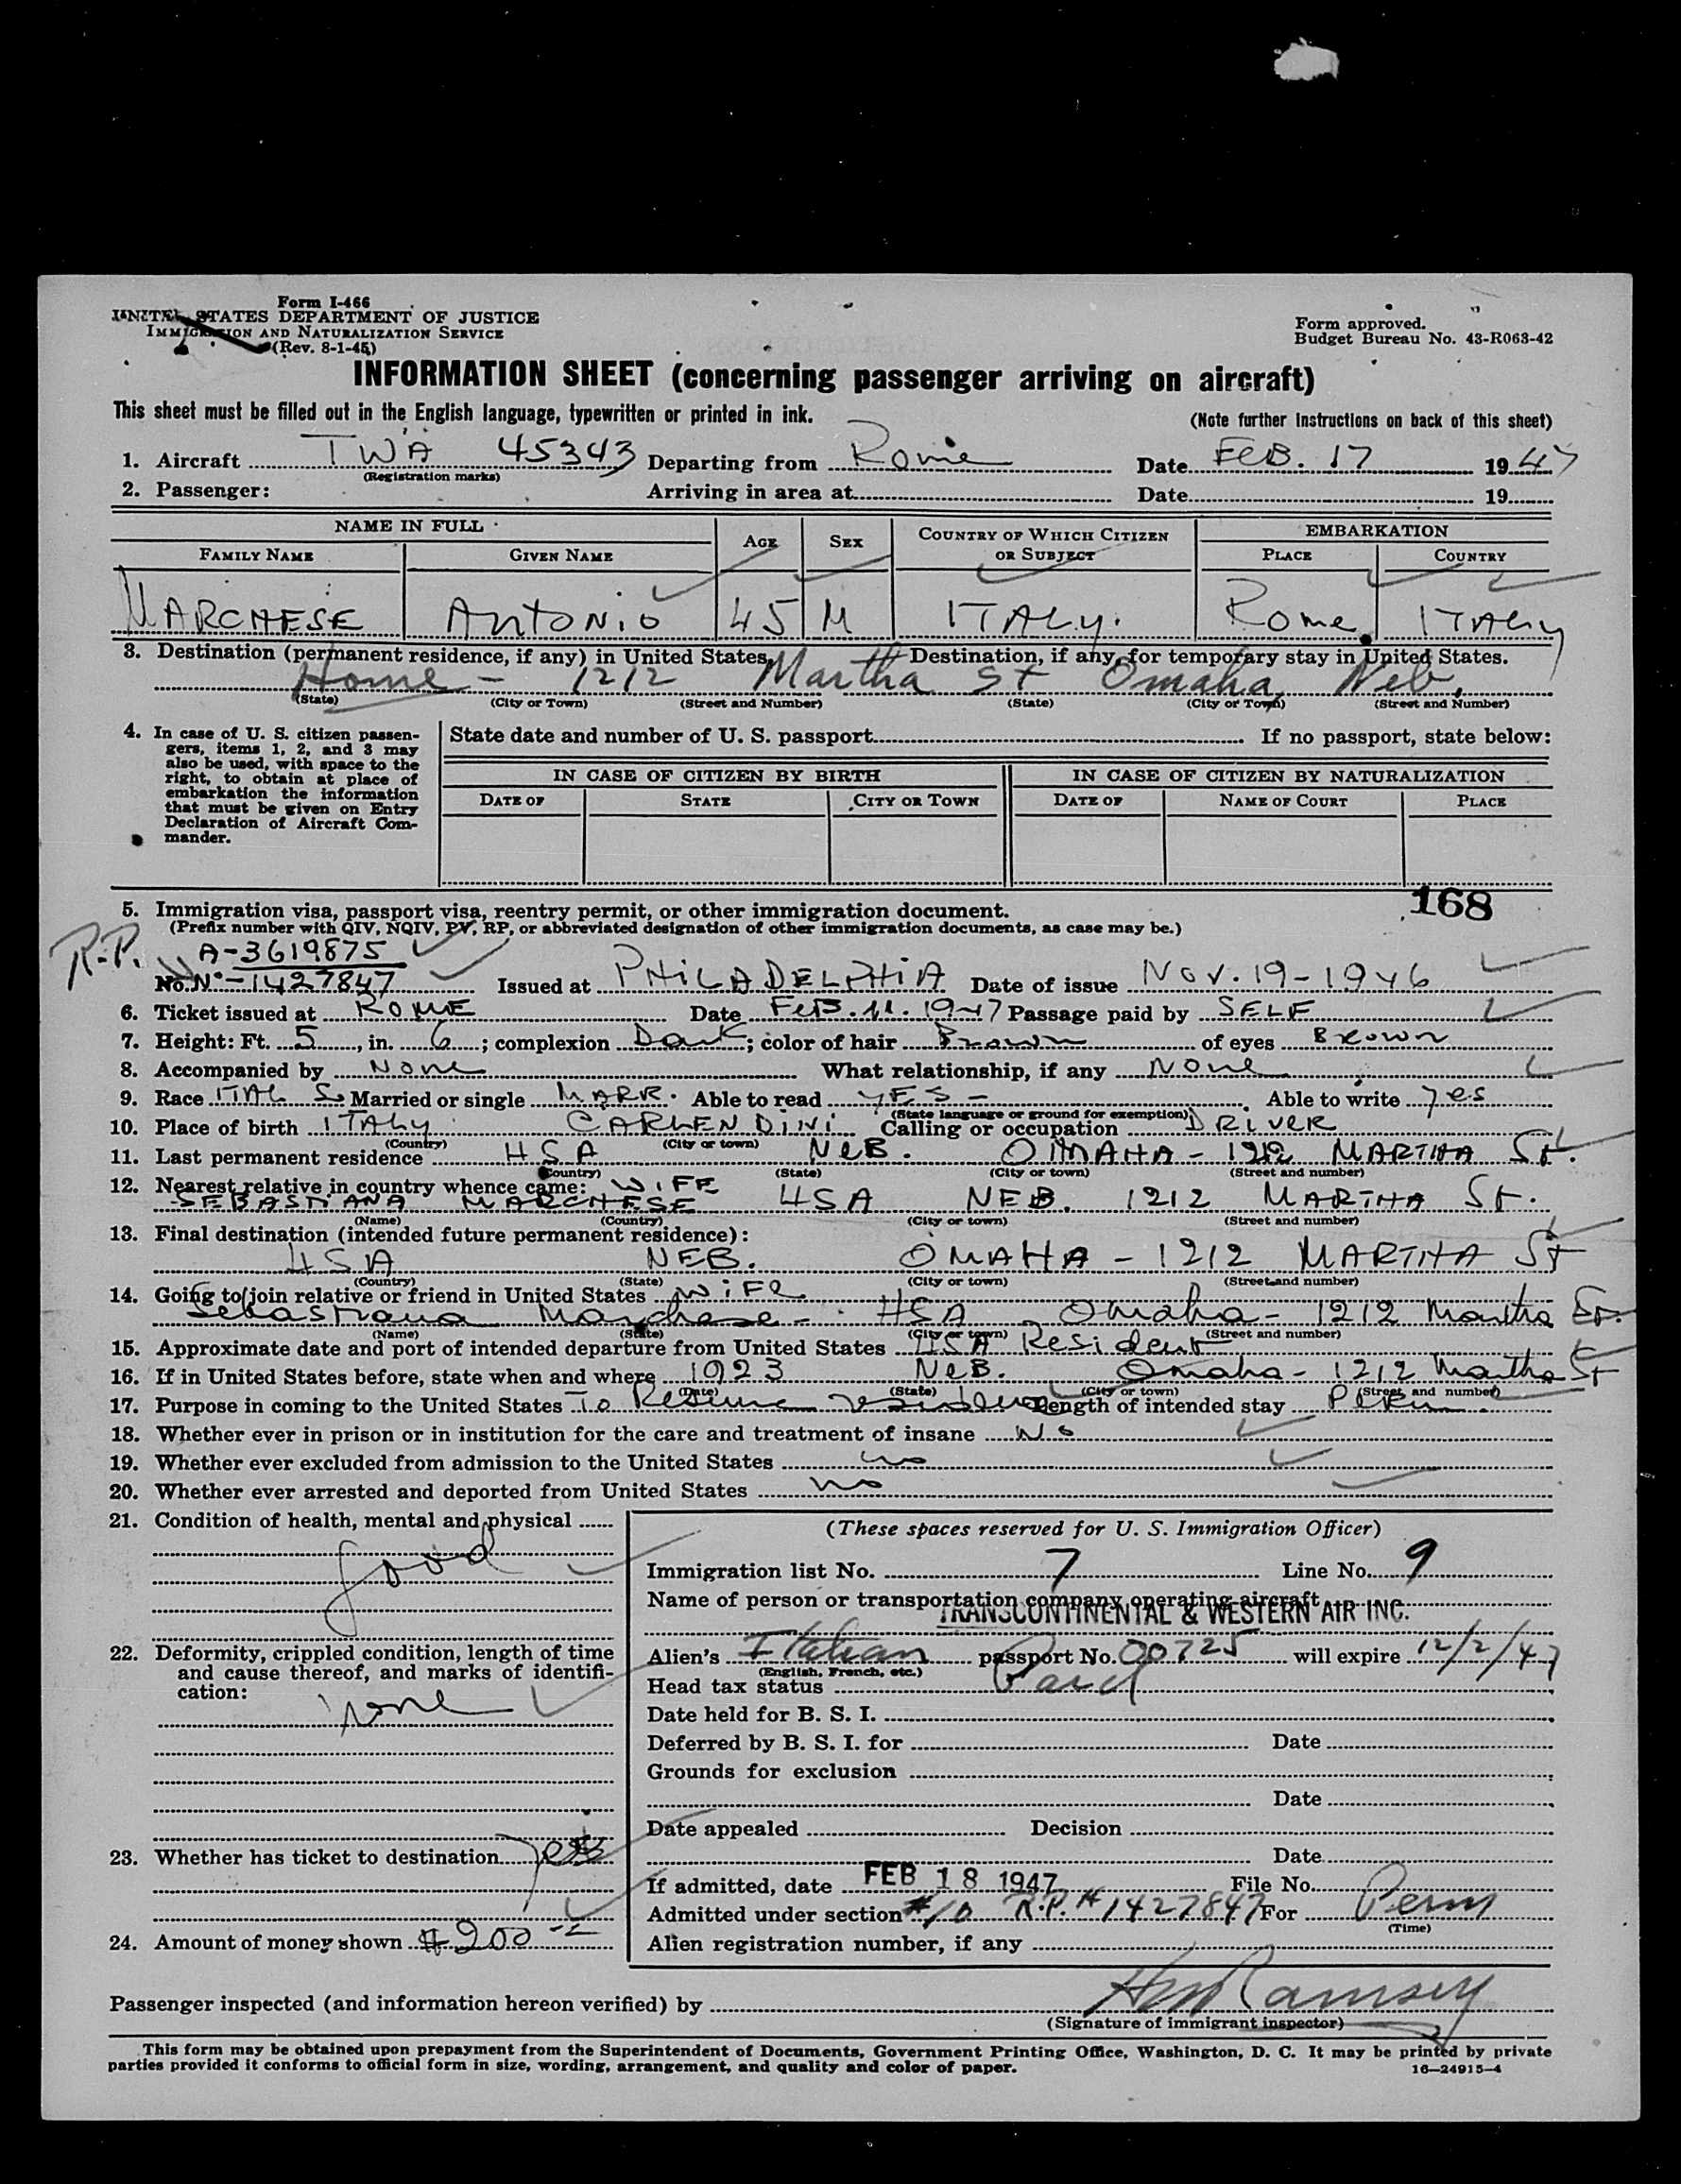 Form I-466
UNITED STATES DEPARTMENT OF JUSTICE
IMMIGRATION AND NATURALIZATION SERVICE
(Rev. 8-1-45)
Form approved.
Budget Bureau No. 43-R063-42
INFORMATION SHEET (concerning passenger arriving on aircraft)
This sheet must be filled out in the English language, typewritten or printed in ink.
(Note further instructions on back of this sheet)
1. Aircraft TWA 45343 Departing from Rome Date FEB. 17 1947
(Registration marks)
2. Passenger: Arriving in area at Date 19
NAME IN FULL AGE SEX COUNTRY OF WHICH CITIZEN OR SUBJECT EMBARKATION
FAMILY NAME GIVEN NAME PLACE COUNTRY
MARCHESE ANTONIO 45 M ITALY. Rome ITALY
3. Destination (permanent residence, if any) in United States. Destination, if any, for temporary stay in United States.
Home - 1212 Martha St Omaha, Neb.
(State) (City or Town) (Street and Number) (State) (City or Town) (Street and Number)
4. In case of U. S. citizen passengers, items 1, 2, and 3 may also be used, with space to the right, to obtain at place of embarkation the information that must be given on Entry Declaration of Aircraft Commander.
State date and number of U. S. passport If no passport, state below:
IN CASE OF CITIZEN BY BIRTH IN CASE OF CITIZEN BY NATURALIZATION
DATE OF STATE CITY OR TOWN DATE OF NAME OF COURT PLACE
168
5. Immigration visa, passport visa, reentry permit, or other immigration document.
(Prefix number with QIV, NQIV, PV, RP, or abbreviated designation of other immigration documents, as case may be.)
R.P. A-3619875
No. N°-1427847 Issued at PHILADELPHIA Date of issue NOV. 19-1946
6. Ticket issued at ROME Date FEB. 11. 1947 Passage paid by SELF
7. Height: Ft. 5, in. 6; complexion Dark; color of hair Brown of eyes Brown
8. Accompanied by None What relationship, if any None
9. Race ITAL S. Married or single MARR. Able to read YES - Able to write yes
(State language or ground for exemption)
10. Place of birth ITALY CARLENDINI Calling or occupation DRIVER
(Country) (City or town)
11. Last permanent residence USA NEB. OMAHA - 1212 MARTHA St.
(Country) (State) (City or town) (Street and number)
12. Nearest relative in country whence came: WIFE
SEBASTIANA MARCHESE USA NEB. 1212 MARTHA St.
(Name) (Country) (City or town) (Street and number)
13. Final destination (intended future permanent residence):
USA NEB. OMAHA - 1212 MARTHA St
(Country) (State) (City or town) (Street and number)
14. Going to join relative or friend in United States WiFe
Sebastiana Marchese - USA Omaha - 1212 Martha St.
(Name) (State) (City or town) (Street and number)
15. Approximate date and port of intended departure from United States USA Resident
16. If in United States before, state when and where 1923 NEB. Omaha - 1212 Martha St
(Date) (State) (City or town) (Street and number)
17. Purpose in coming to the United States To Resume residence Length of intended stay Perm.
18. Whether ever in prison or in institution for the care and treatment of insane No
19. Whether ever excluded from admission to the United States no
20. Whether ever arrested and deported from United States no
21. Condition of health, mental and physical
good
22. Deformity, crippled condition, length of time and cause thereof, and marks of identification:
none
23. Whether has ticket to destination yes
24. Amount of money shown $200
(These spaces reserved for U. S. Immigration Officer)
Immigration list No. 7 Line No. 9
Name of person or transportation company operating aircraft
TRANSCONTINENTAL & WESTERN AIR INC.
Alien's Italian passport No. 00725 will expire 12/2/47
(English, French, etc.)
Head tax status Paid
Date held for B. S. I.
Deferred by B. S. I. for Date
Grounds for exclusion
Date
Date appealed Decision
Date
If admitted, date FEB 18 1947 File No.
Admitted under section #10 R.P.#1427847 For Perm
(Time)
Alien registration number, if any
Passenger inspected (and information hereon verified) by Ramsey
(Signature of immigrant inspector)
This form may be obtained upon prepayment from the Superintendent of Documents, Government Printing Office, Washington, D. C. It may be printed by private
parties provided it conforms to official form in size, wording, arrangement, and quality and color of paper.
16—24915-4